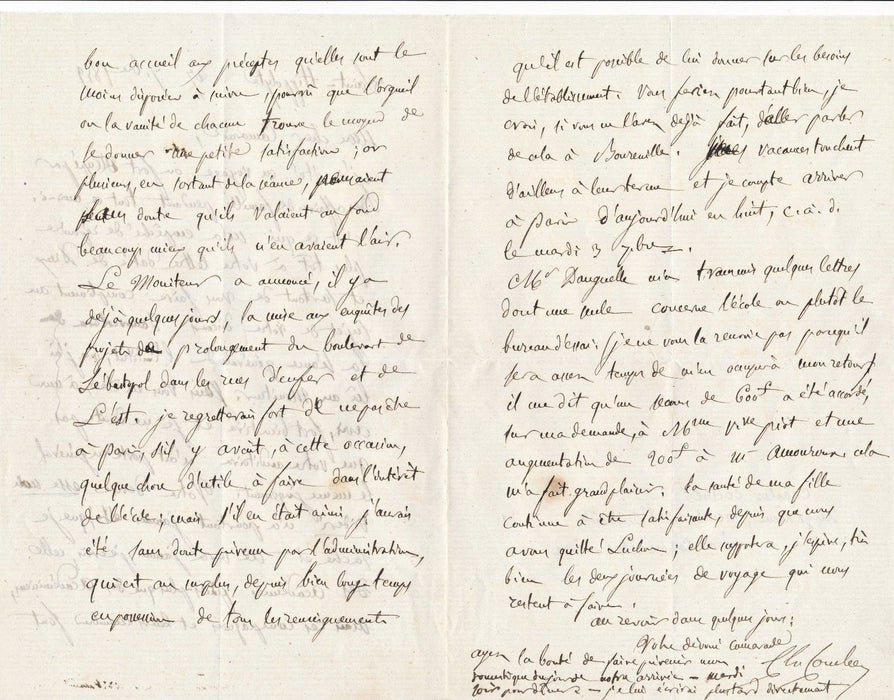 bon accueil aux préceptes qu'elles sont le
moins disposées à suivre, pourvû que l'orgueil
ou la vanité de chacune trouve le moyen de
se donner une petite satisfaction ; or
plusieurs, en sortant de la séance, pensaient
sans doute qu'ils valaient au fond
beaucoup mieux qu'ils n'en avaient l'air.
Le Moniteur a annoncé, il y a
déjà quelques jours, la mise aux enquêtes des
projets de prolongement du boulevart de
Sébastopol dans les rues d'enfer et de
L'est. je regretterais fort de ne pas être
à paris, s'il y avait, à cette occasion,
quelque chose d'utile à faire dans l'intérêt
de l'école ; mais s'il en était ainsi, j'aurais
été sans doute prévenu par l'administration,
qui est au surplus, depuis bien longtemps
en possession de tous les renseignements
qu'il est possible de lui donner sur les besoins
de l'établissement. Vous feriez pourtant bien, je
crois, si vous ne l'avez déjà fait, d'aller parler
de cela à Boureuille. vacances touchent
d'ailleurs à leur terme et je compte arriver
à paris d'aujourd'hui en huit, c. à. d.
le mardi 3 7bre.
Mr Danguelle m'a transmis quelques lettres
dont une seule concerne l'école ou plutôt le
bureau d'essai ; je ne vous la renvoie pas parcequ'il
sera assez temps de m'en occuper à mon retour.
il me dit qu'un secours de 600f a été accordé,
sur ma demande, à Mme Vve piot et une
augmentation de 200f à Mr Amouroux. cela
m'a fait grand plaisir. la santé de ma fille
continue à être satisfaisante, depuis que nous
avons quitté Luchon ; elle supportera, j'espère, très
bien les deux journées de voyage qui nous
restent à faire.
au revoir dans quelques jours ;
Votre dévoué camarade
Ch. Combes
ayez la bonté de faire prévenir mon
domestique du jour de notre arrivée – mardi
pour dîner – je lui écrirai plus tard directement